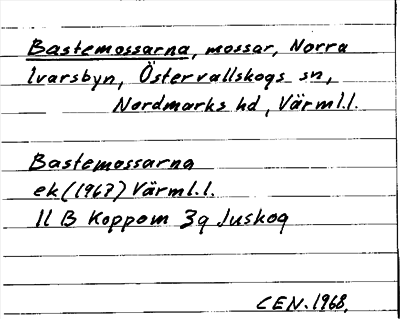 Bastemossarna, mossar, Norra
Ivarsbyn, Östervallskogs sn,
Nordmarks hd, Värml.l.
Bastemossarna
ek (1967) Värml.l.
11 B Koppom 3g Juskog
CEN. 1968.